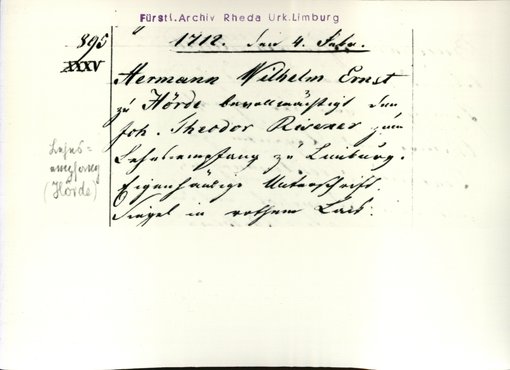 Fürstl. Archiv Rheda Urk. Limburg
895
XXXV
1712. den 4. Febr.
Hermann Wilhelm Ernst
zu Hörde bevollmächtigt den
Joh. Theodor Rivener zum
Lehnsempfang zu Limburg.
Eigenhändige Unterschrift.
Siegel in rothem Lack.
Lehns=
empfang
(Hörde)